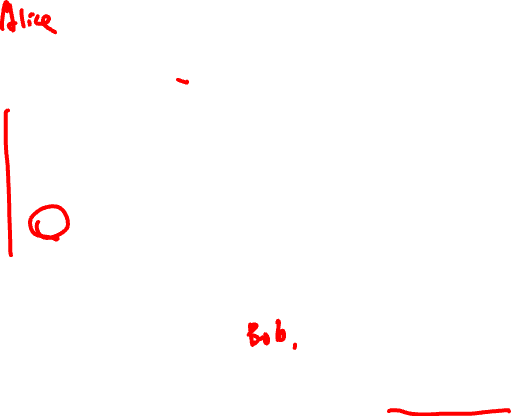 Alice
Bob.